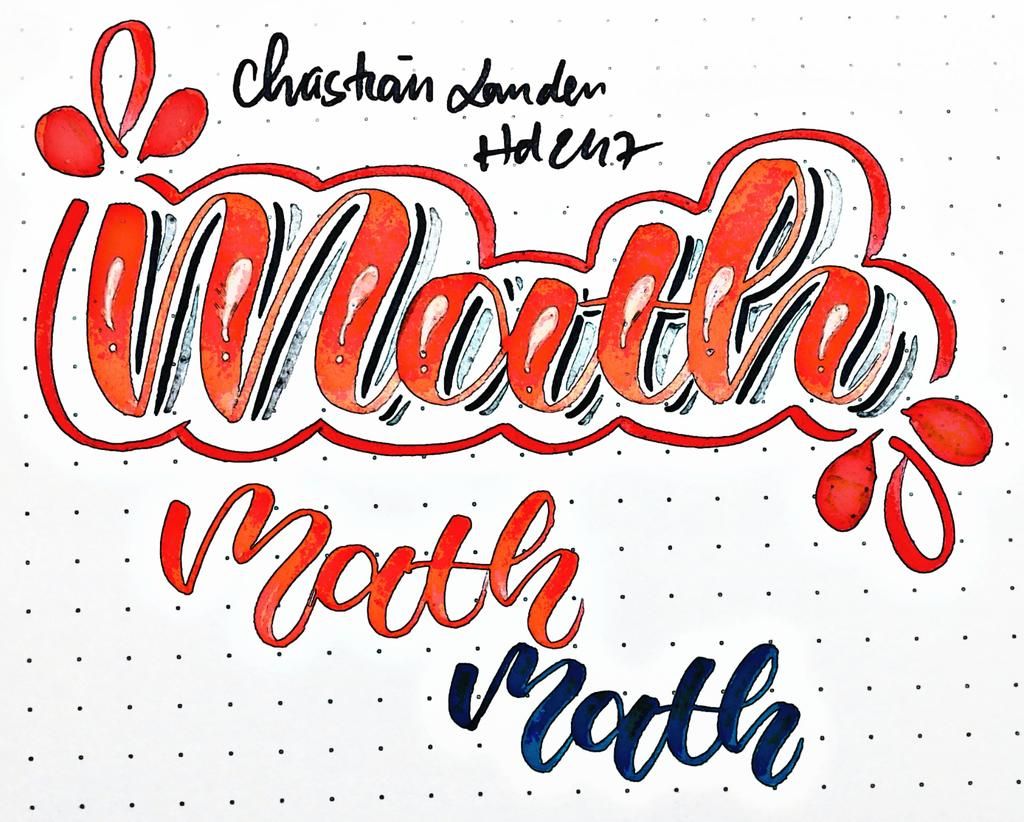 Christian Landen
Math
Math
Math